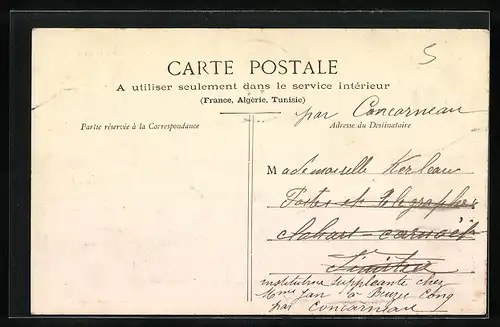 5
CARTE POSTALE
A utiliser seulement dans le service intérieur
(France, Algérie, Tunisie)
par Concarneau
Partie réservée à la Correspondance
Adresse du Destinataire
Mademoiselle Kerleau
Postes et Télégraphes
Clohars-Carnoët
Finistère
institutrice suppléante chez
Mme Jan à Beuzec Conq
par Concarneau